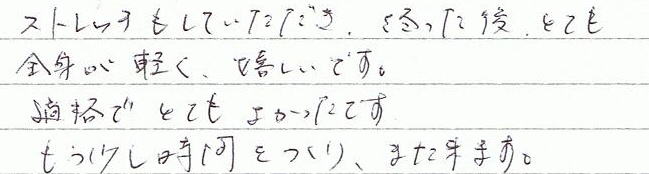 ストレッチもしていただき、終った後、とても
全身が軽く、嬉しいです。
適格でとてもよかったです
もう少し時間をつくり、また来ます。